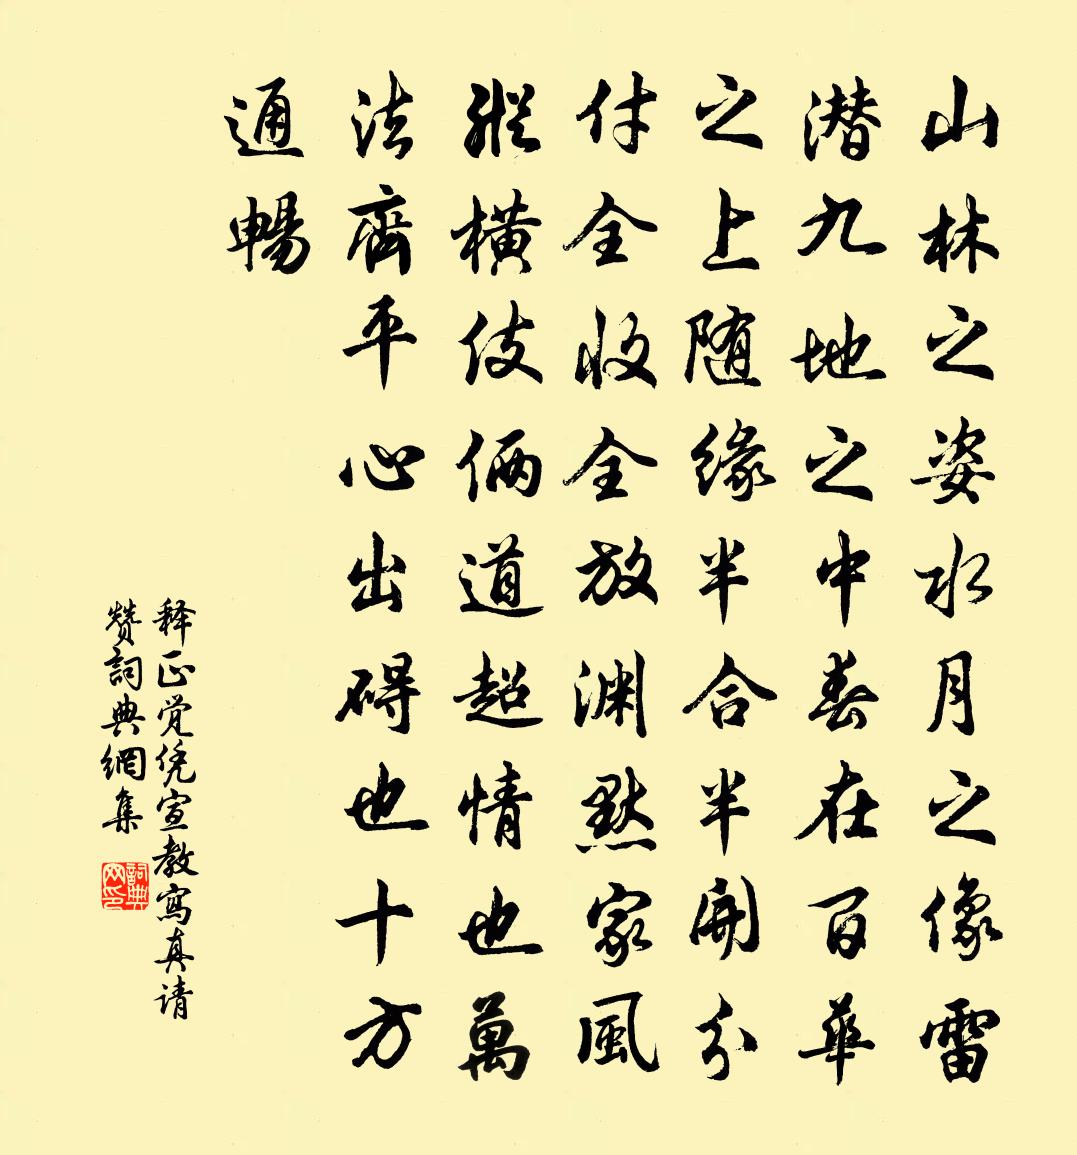 山林之姿水月之像雷
潜九地之中春在百華
之上随缘半合半開分
付全收全放渊默家風
縱橫伎倆道超情也萬
法齊平心出碍也十方
通暢
释正觉凭宣教寫真请
赞詞典網集
詞典
网印